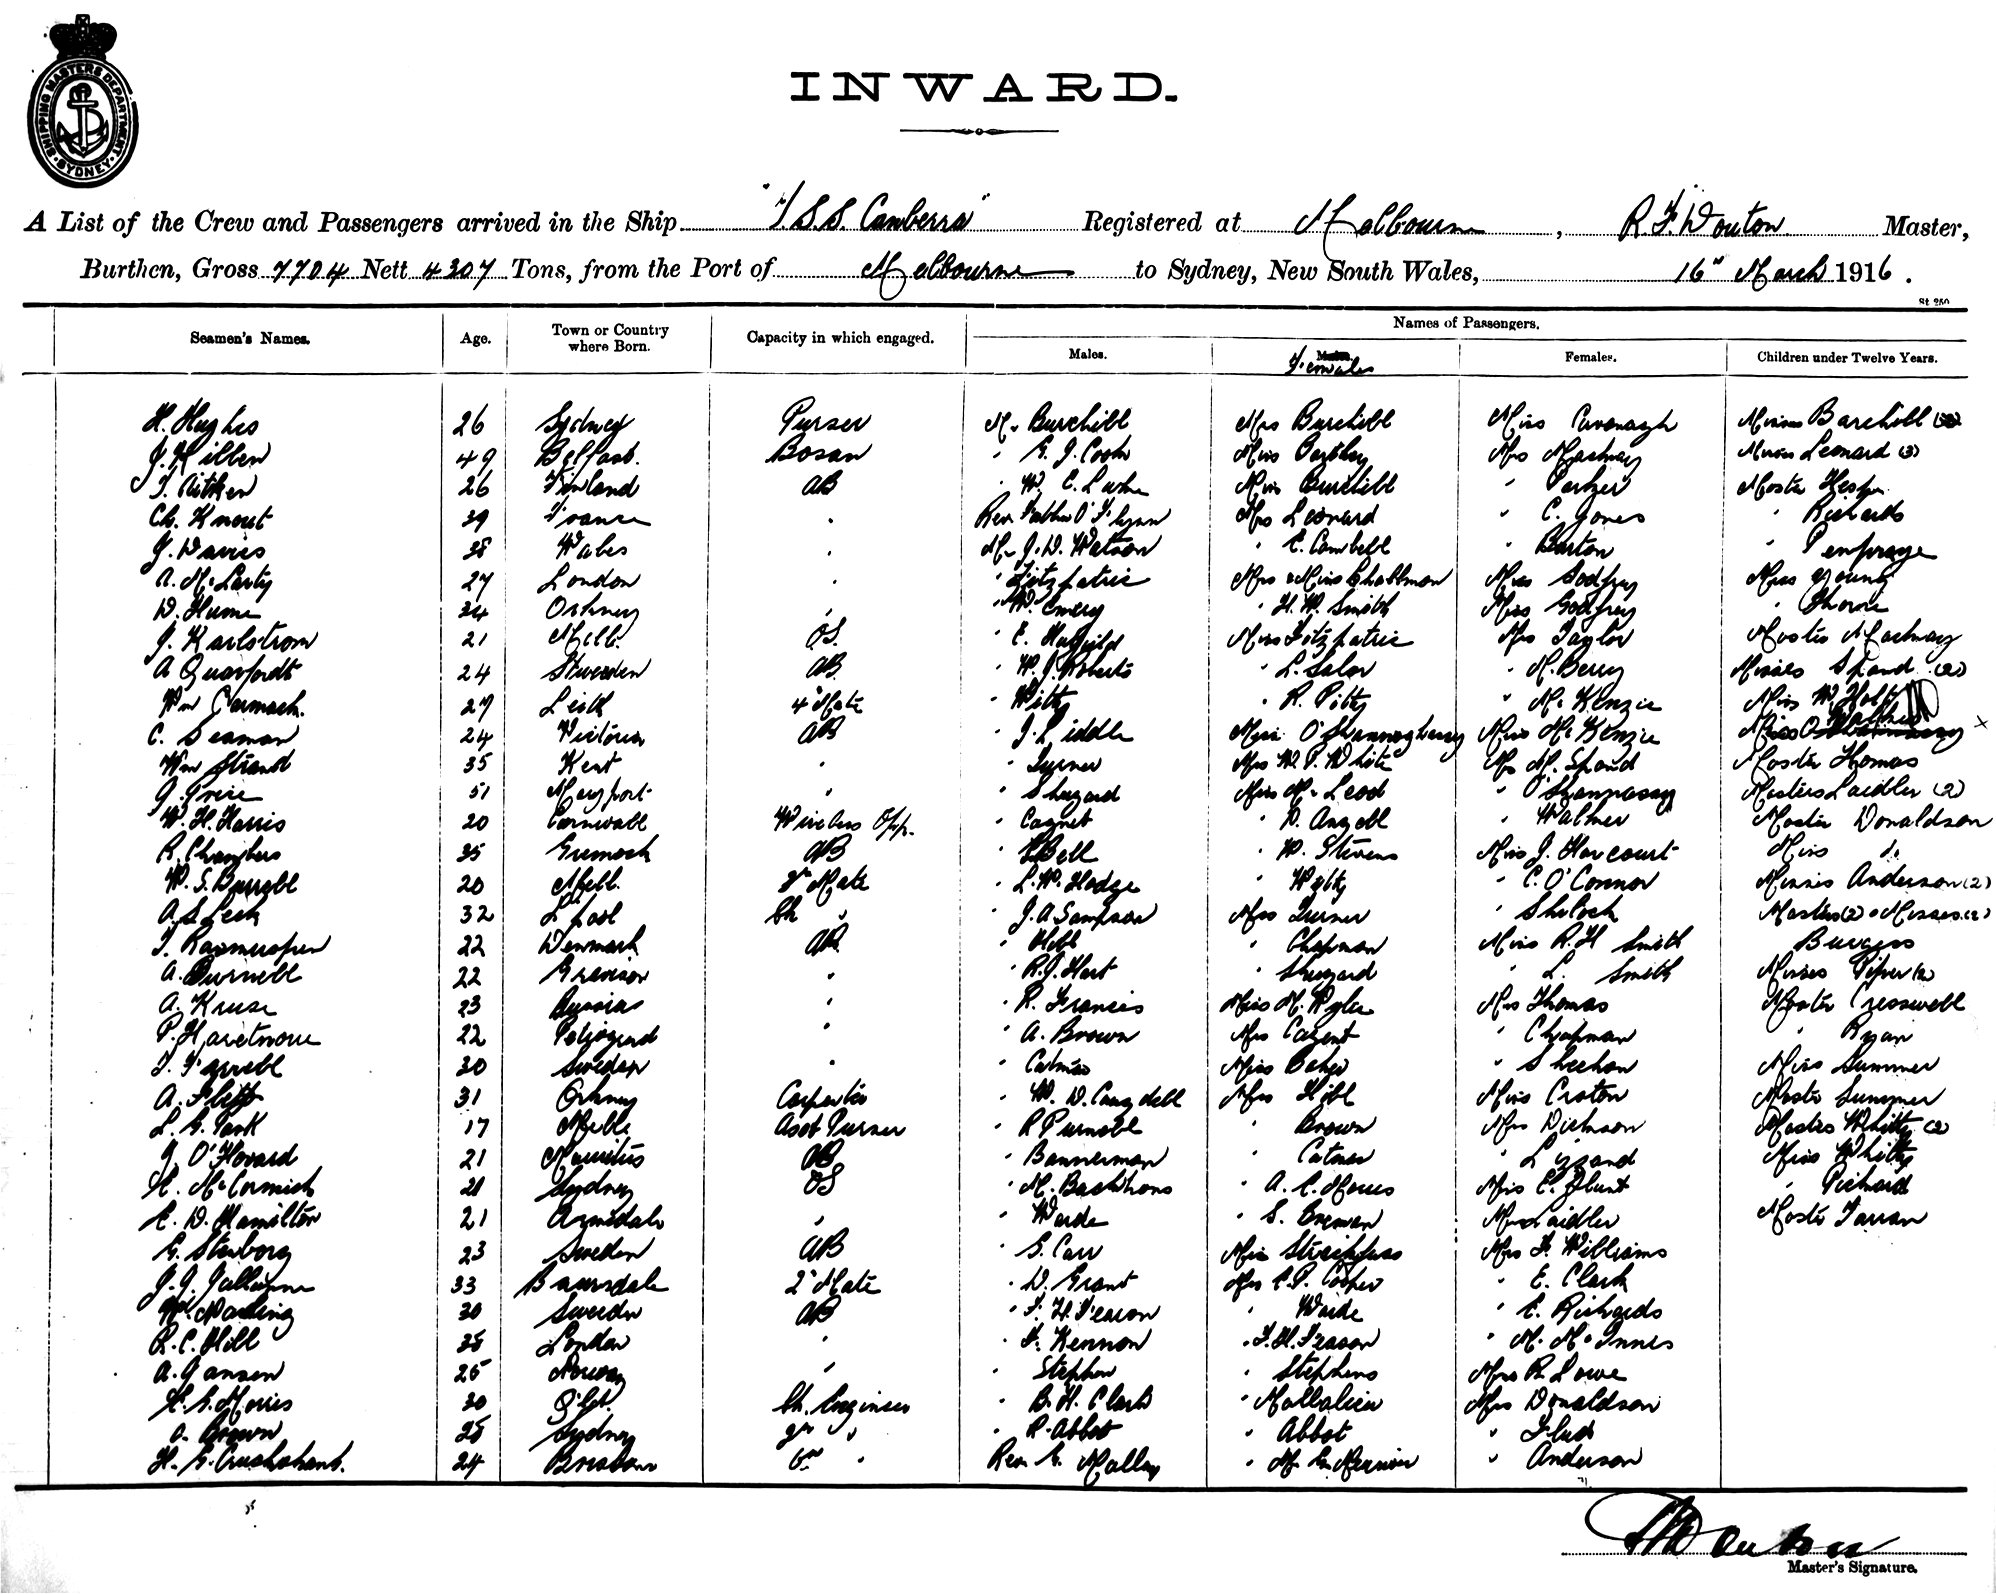 SHIPPING MASTERS DEPARTMENT · SYDNEY ·
INWARD.
A List of the Crew and Passengers arrived in the Ship "T.S.S. Canberra" Registered at Melbourne, R. F. Douton Master,
Burthen, Gross 7704 Nett 4307 Tons, from the Port of Melbourne to Sydney, New South Wales, 16" March 1916.
St 250
Seamen's Names. Age. Town or Country where Born. Capacity in which engaged. Names of Passengers.
Males. Females Females. Children under Twelve Years.
H. Hughes 26 Sydney Purser Mr Burchill Mrs Burchill Miss Cavanagh Misses Burchill
J. Killen 49 Belfast. Bosan " G. J. Cook Miss Mrs Mashney Misses Leonard (3)
T. Aitken 26 Finland AB " W. E. Miss Burchill " Perkzer Master
Ch. Knout 39 France " Rev. Father O'Flynn Mrs Leonard " C. Jones " Richards
J. Davies 28 Wales " Mr J. D. Watson " C. Cambell " Barton "
A. McLarty 27 London " " Fitzpatric Mrs & Miss Challman Mrs Godfrey Miss Young
D. Hume 34 Orkney " " W. Emery " H. W. Smith Miss Godfrey " Thorne
J. Karlstrom 21 Melb. OS. " E. Hatfield Miss Fitzpatric Mrs Taylor Master Mashney
A Quarfordt 24 Sweeden AB. " W. J. Roberts " L. Salor " M. Berry Misses Shand (2)
Wm Carmach. 27 Leith 4" Mate " Witty " R. Pitty " McKenzie Miss W. Holt
C. Seaman 24 Victoria AB " J. Liddle Miss O'Shannaghessy Miss McKenzie Miss Walker
Wm Strand 35 Kent " " Turner Mrs W. P. White Mrs M. Shand Master Thomas
J. Greie 51 Maryport " " Shegard Miss McLeod " O'Shannassy Masters Laidler (2)
W. H. Harris 20 Cornwall Wireless Opp. " Cagnet " D. Angell " Walker Master Donaldson
R. Chambers 35 Greenock AB " Bell " W. Stevens Miss J. Harcourt Miss do
W. S. Burrell 20 Melb. 3" Mate " L. W. Hodge " Welty " C. O'Connor Misses Anderson (2)
A. S. Leck 32 L'pool Ch " " J. A. Sampson Mrs Turner " Shilock Masters (2) & Misses (2)
T. Rasmussen 22 Denmark AB " Hibl " Chapman Miss R. H Smith Burgess
A. Burnell 22 " " R. J. Hart " Shegard " L. Smith Misses Piper (2)
A. Kruse 23 Russia " " R. Francis Miss M. Wylie Mrs Thomas Master Cresswell
P. Haretnoue 22 Petrograd " " A. Brown Mrs Cagent " Chapman " Ryan
T. Farrell 30 Sweden " " Catmer Miss Baker " Sheehan Miss Summer
A. Flett 31 Orkney Carpenter " W. D. Campdell Mrs Hibl Miss Craton Master Summer
L. G. Park 17 Melb. Asst Purser " R Purnell " Brown Mrs Dickson Masters Whitty (2)
J. O'Hovard 21 Mauritus AB " Bannerman " Catmer " Lizzand Miss Whitty
H. McCormick 21 Sydney OS " M. Bashhons " A. E. Moves Miss E. Blunt " Richard
E. D. Hamilton 21 Armidale " " Warde " S. Breman Mrs Laidler Master Farran
G. Stenborg 23 Sweden AB " G. Carr Miss Streichfuss Mrs F. Williams
J. J. Jullianne 33 Bairnsdale 2" Mate " D. Grant Mrs C. P. Cooper " E. Clark
Wm Marling 30 Sweeden AB " F. H. Fearon " Warde " E. Richards
R. C. Hill 28 London " " F. Kennon " F. H. Fearon " M. McInnes
A. Jansen 25 Norway " " Stephen " Stephens Mrs R. Lowe
H. G. Morris 30 Q'ld. Ch. Engineer " B. H. Clark " Mallalieu Mrs Donaldson
O. Brown 28 Sydney 3rd " " R. Abbot " Abbot " Flud
H. G. Cruikshank. 24 Brisbane 6th " Rev. G. Malley " M. " Anderson
Master's Signature.